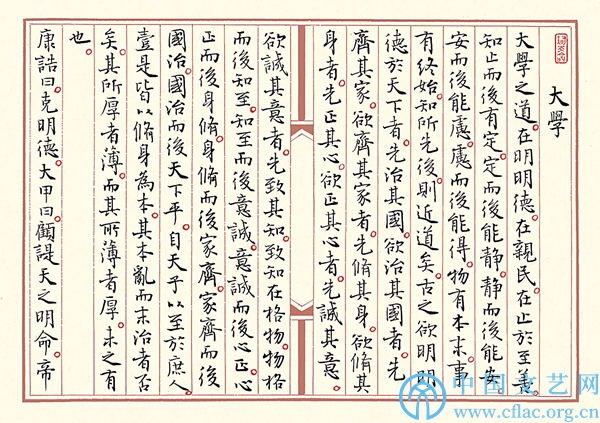 大學
大學之道。在明明德。在親民。在止於至善。
知止而後有定。定而後能靜。靜而後能安。
安而後能慮。慮而後能得。物有本末。事
有終始。知所先後。則近道矣。古之欲明明
德於天下者。先治其國。欲治其國者。先
齊其家。欲齊其家者。先脩其身。欲脩其
身者。先正其心。欲正其心者。先誠其意。
欲誠其意者。先致其知。致知在格物。物格
而後知至。知至而後意誠。意誠而後心正。心
正而後身脩。身脩而後家齊。家齊而後
國治。國治而後天下平。自天子以至於庶人。
壹是皆以脩身為本。其本亂而末治者否
矣。其所厚者薄。而其所薄者厚。未之有
也。
康誥曰。克明德。大甲曰。顧諟天之明命。帝
中国文艺网
www.cflac.org.cn